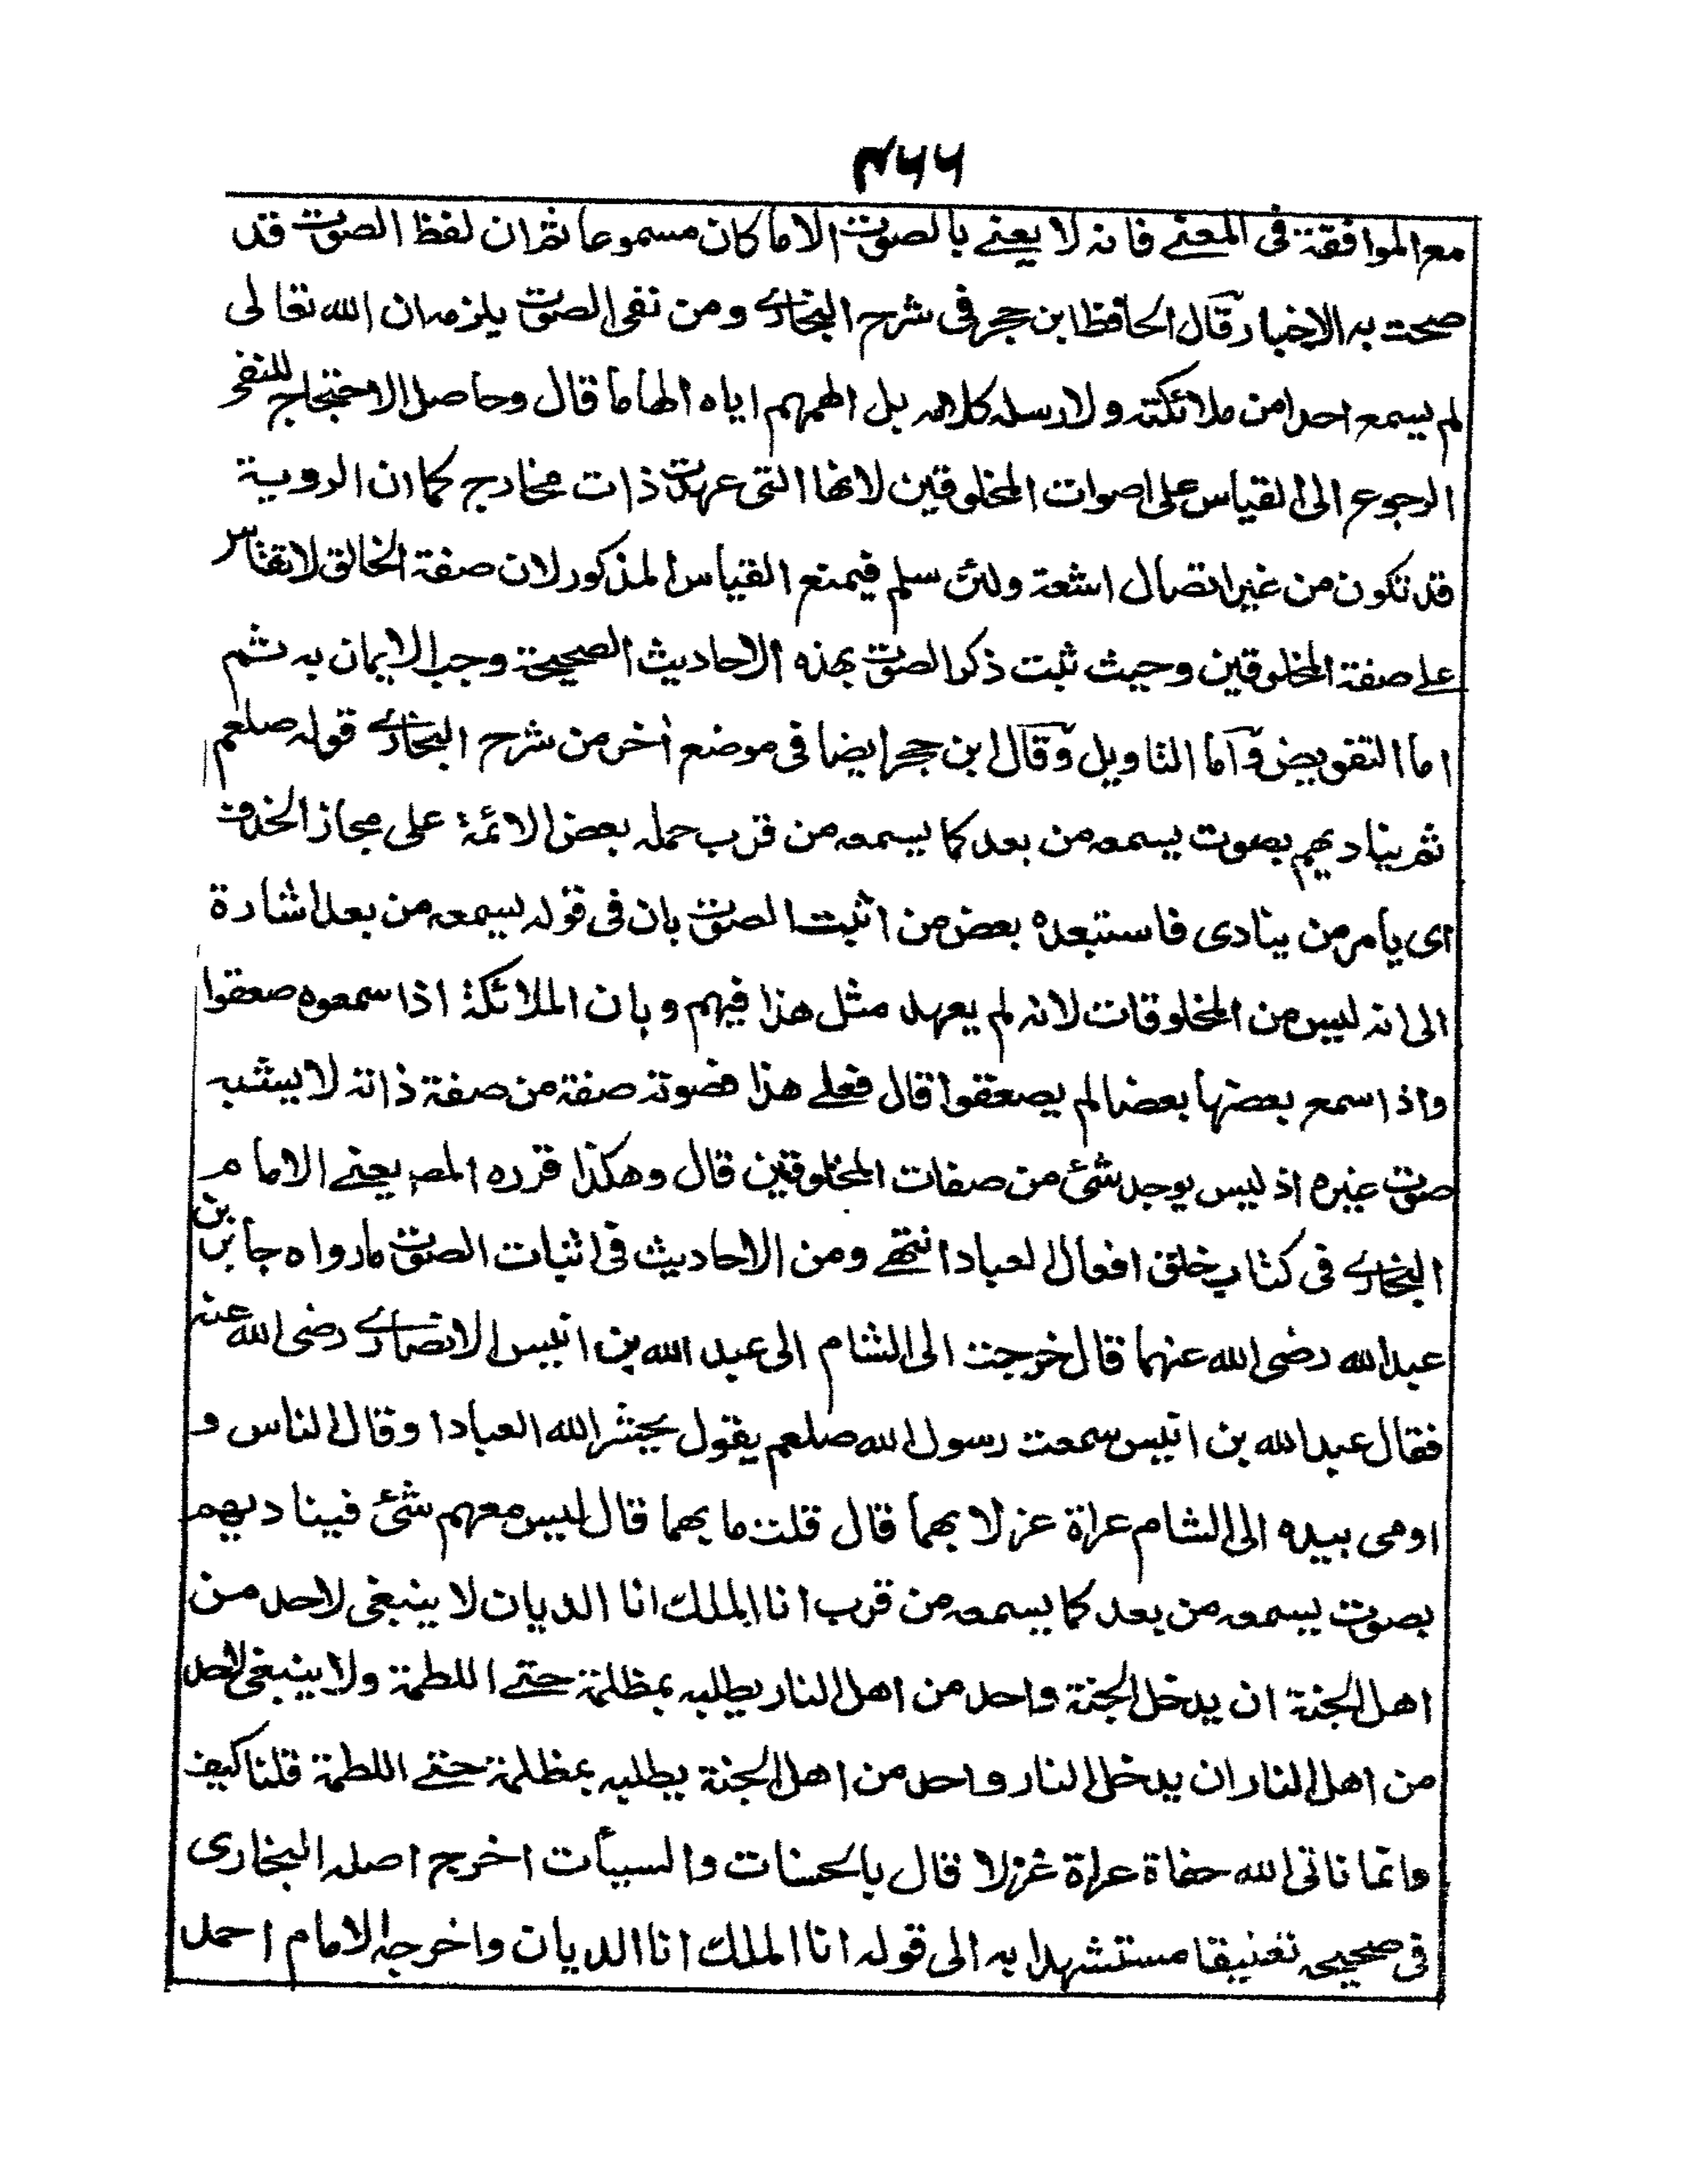 ٤٦٦
مع الموافقة في المعنے فانه لا يعنے بالصوت الا ما كان مسموعا ثم ان لفظ الصوت قد
صحت به الاخبار قال الحافظ ابن حجر فى شرح البخارے ومن نفى الصوت يلزمه ان الله تعالى
لم يسمع احدا من ملائكته ولا رسله كلامه بل الهمهم اياه الهاما قال وحاصل الاحتجاج للنفے
الرجوع الى القياس على اصوات المخلوقين لانها التى عهدت ذات مخارج كما ان الروية
قد تكون من غير اتصال اشعة ولئن سلم فيمنع القياس المذكور لان صفة الخالق لا تقاس
علے صفة المخلوقين وحيث ثبت ذكر الصوت بهذه الاحاديث الصحيحة وجب الايمان به ثم
اما التفويض وآما التاويل وقال ابن حجر ايضا فى موضع أخر من شرح البخارے قوله صلعم
ثم يناديهم بصوت يسمعه من بعد كما يسمعه من قرب حمله بعض الائمة على مجاز الحذف
اى يأمر من ينادى فاستبعده بعض من اثبت الصوت بان فى قوله يسمعه من بعد اشارة
الى انه ليس من المخلوقات لانه لم يعهد مثل هذا فيهم وبان الملائكة اذا سمعوه صعقوا
واذا سمع بعضها بعضا لم يصعقوا قال فعلے هذا فصوته صفة من صفة ذاته لا يشبه
صوت غيره اذ ليس يوجد شئ من صفات المخلوقين قال وهكذا قرره المص يعنے الامام
البخارے فى كتاب خلق افعال العباد انتهے ومن الاحاديث فى اثبات الصوت ما رواه جابر بن
عبدالله رضى الله عنهما قال خرجت الى الشام الى عبد الله بن انيس الانصارے رضى الله عنه
فقال عبد الله بن انيس سمعت رسول الله صلعم يقول يحشر الله العباد او قال الناس و
اومى بيده الى الشام عراة عزلا بهما قال قلت ما بهما قال ليس معهم شئ فيناديهم
بصوت يسمعه من بعد كما يسمعه من قرب انا الملك انا الديان لا ينبغى لاحد من
اهل الجنة ان يدخل الجنة واحد من اهل النار يطلبه بمظلمة حتے اللطمة ولا ينبغى لاحد
من اهل النار ان يدخل النار واحد من اهل الجنة يطلبه بمظلمة حتے اللطمة قلنا كيف
وانما ناتى الله حفاة عراة غزلا قال بالحسنات والسيأت اخرج اصله البخارى
فى صحيحه تعليقا مستشهدا به الى قوله انا الملك انا الديان واخرجه الامام احمد